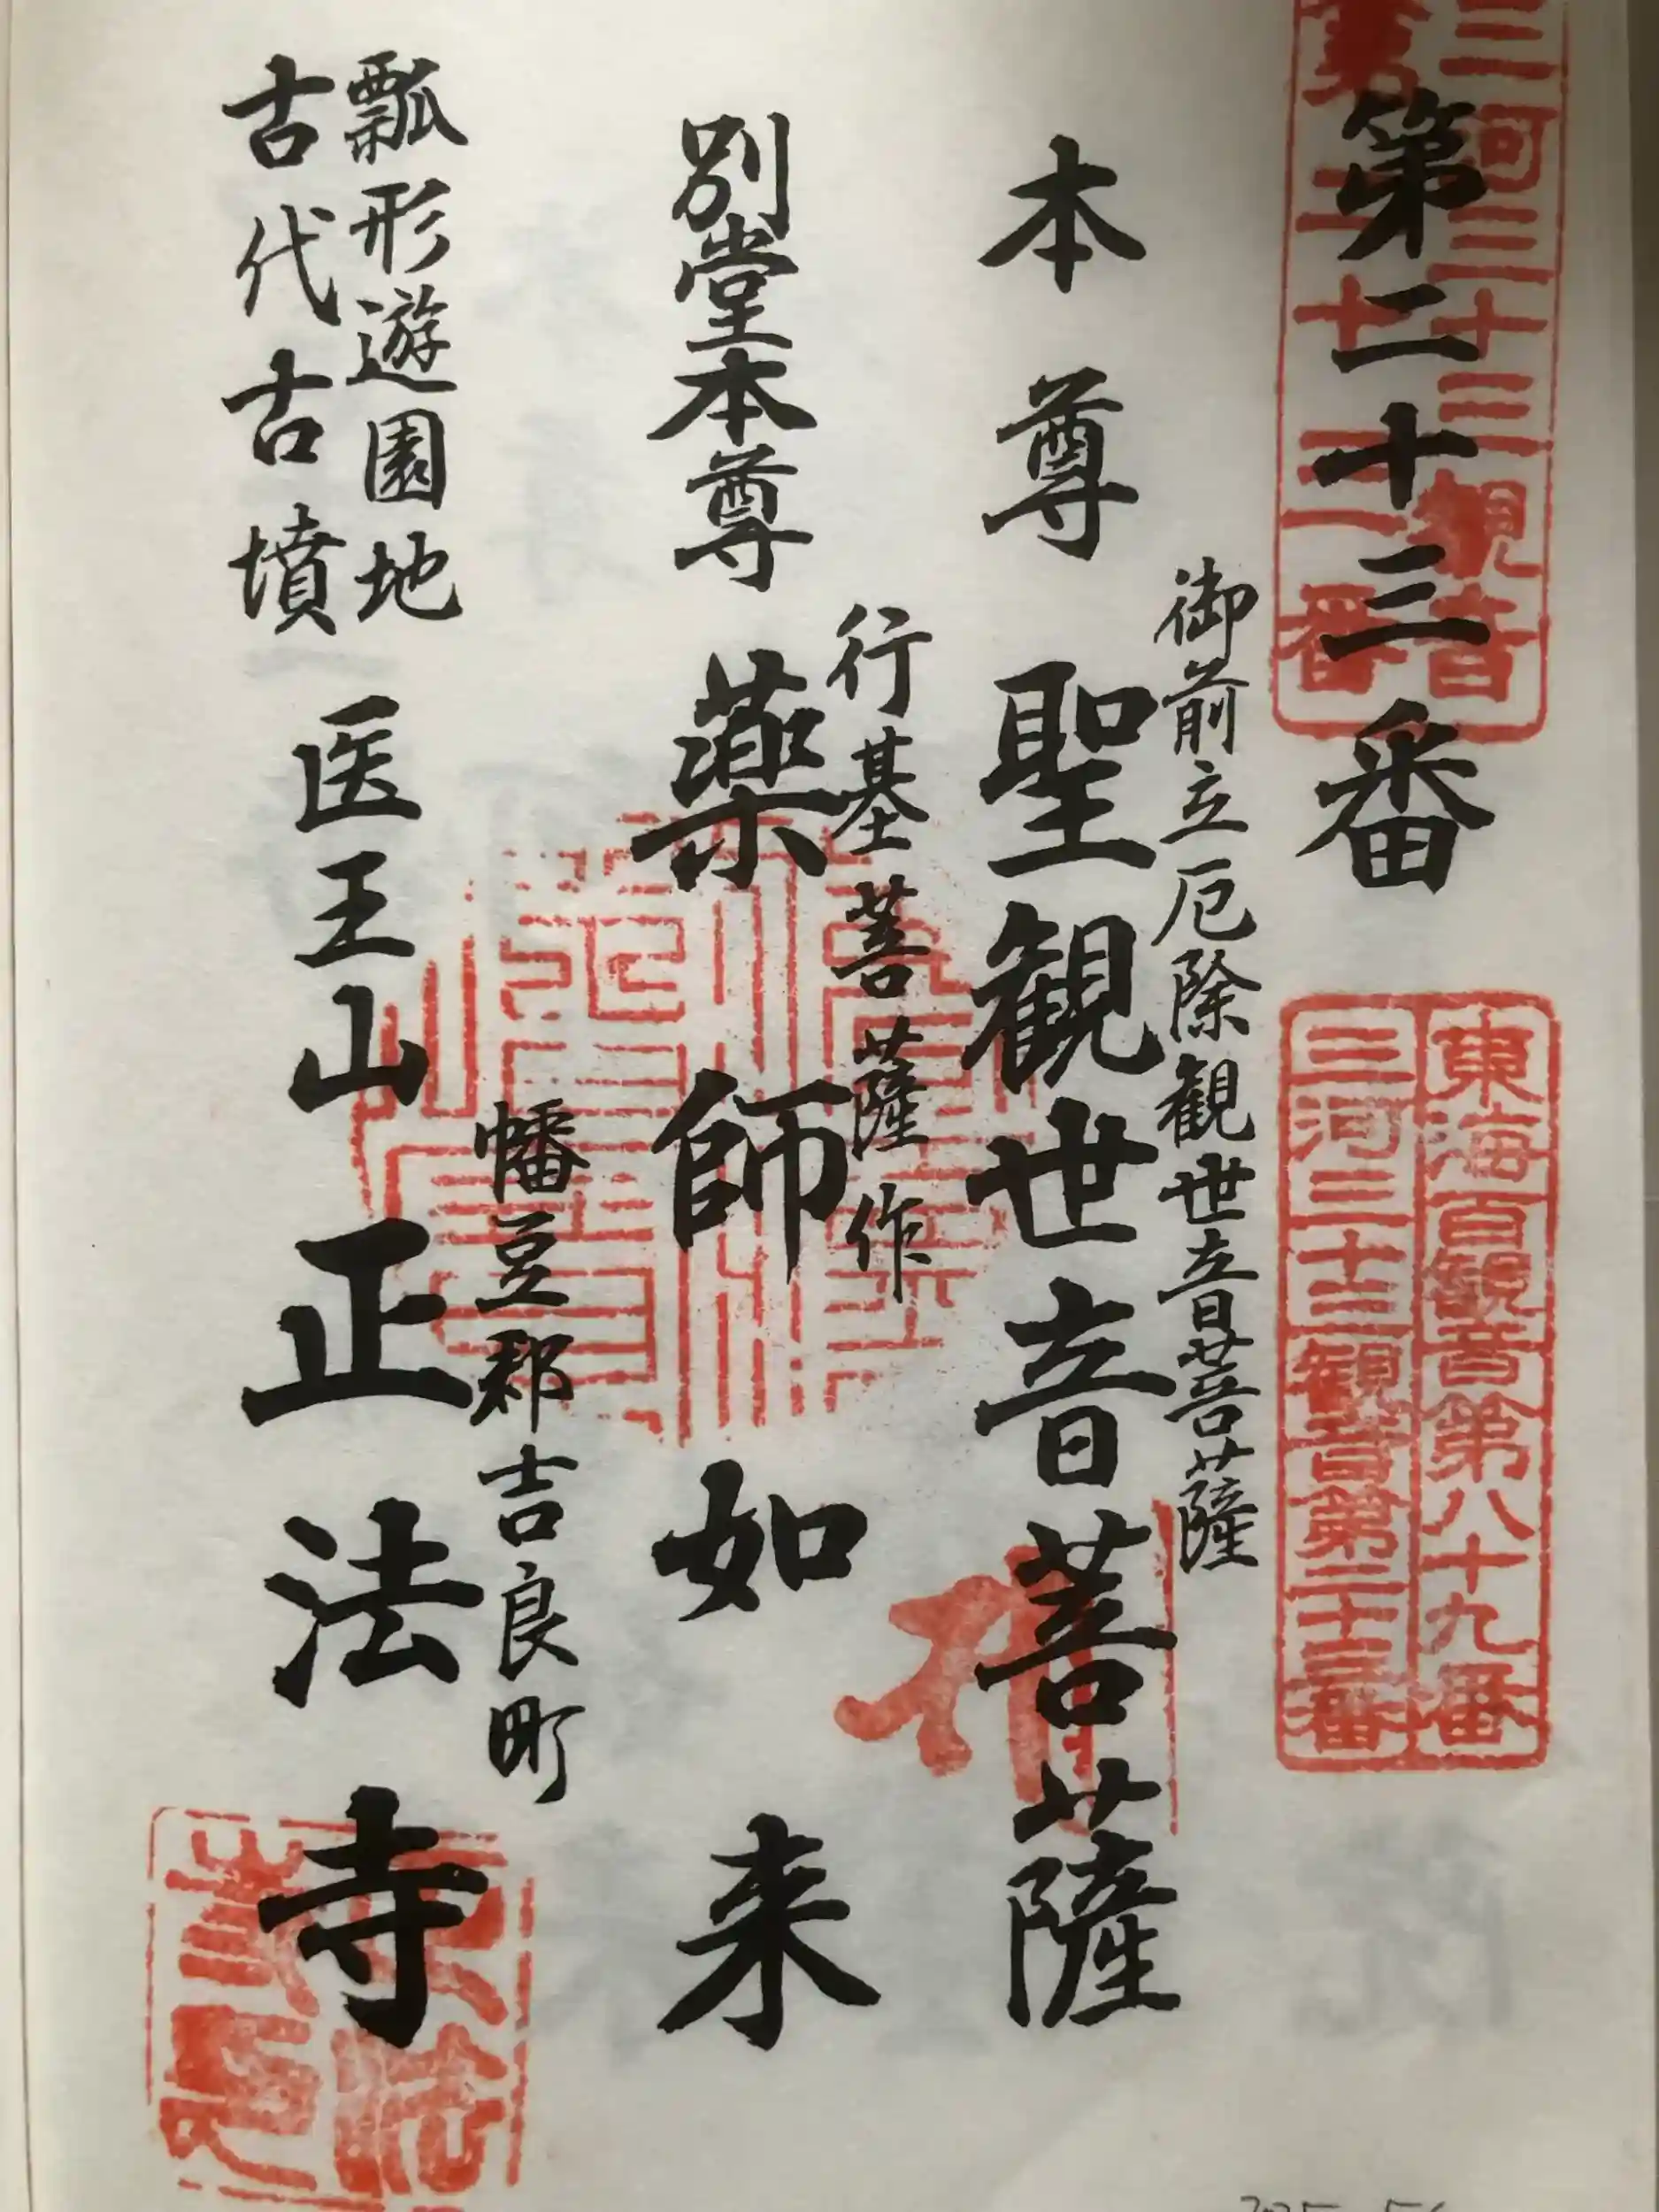 三河三十三観音
第二十三番
第二十三番
東海百観音第八十九番
三河三十三観音第二十三番
御前立厄除観世音菩薩
本尊 聖観世音菩薩
行基菩薩作
別堂本尊 薬師如来
幡豆郡吉良町
瓢形遊園地
古代古墳
医王山 正法寺